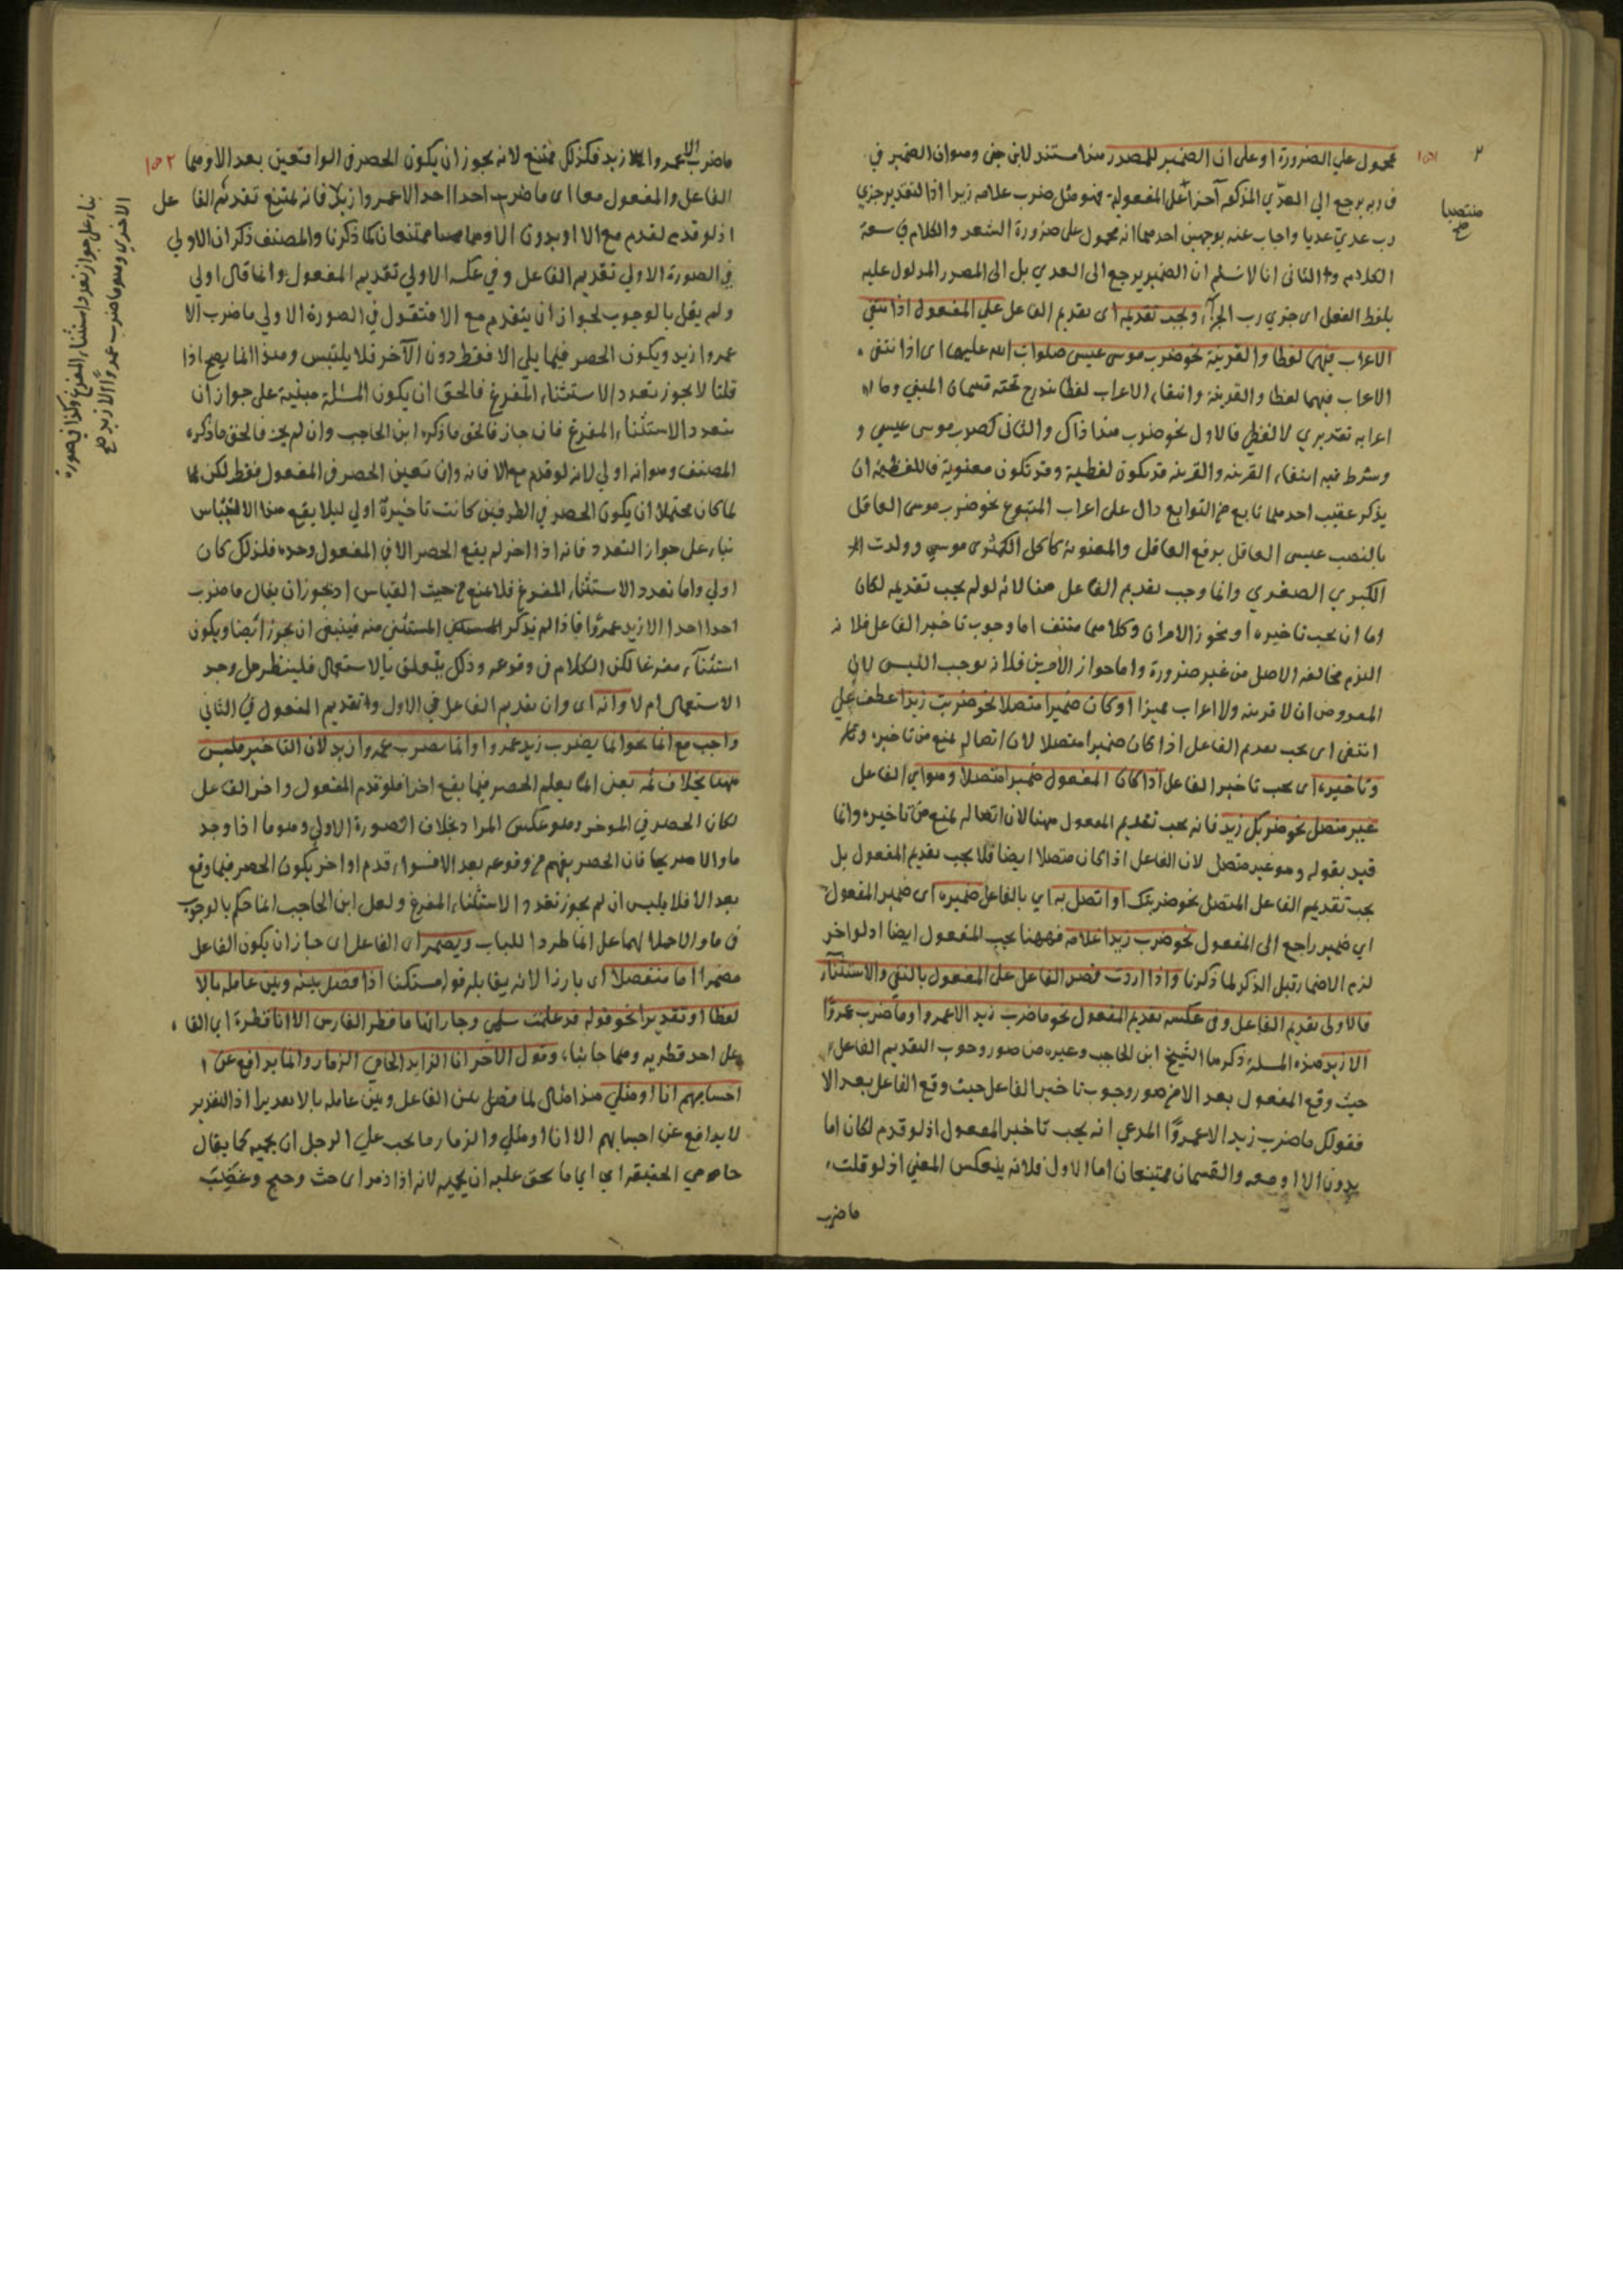 محمول علي الضرورة او علي ان الضمير للمصدر هذا مستند لابن جنى وهو ان الضمير في
في ربه يرجع الي العدّي المذكور آخرا على المفعولية فهو مثل ضرب غلامه زيدا اذا التقدير جزي
رب عدي عديا واجاب عنه بوجهين احدهما انه محمول على ضرورة الشعر والكلام في سعة
الكلام والثانى انا لا نسلم ان الضمير يرجع الى العدي بل الى المصدر المدلول عليه
بلفظ الفعل اى جزي رب الجزآء ويجب تقديمه اى تقديم الفاعل علي المفعول اذا انتفى
الاعراب فيهما لفظا والقرينة نحو ضرب موسى عيسى صلوات الله عليهما اى اذا انتفى
الاعراب فيهما لفظا والقرينة وانتفاء الاعراب لفظا يندرج تحته قسمان المبني وما
اعرابه تقديري لا لفظي فالاول نحو ضرب هذا ذاك والثانى كضرب موسى عيسي و
وشرط فيه انتفاء القرينه والقرينه قد تكون لفظية وقد تكون معنوية فاللفظية ان
يذكر عقيب احدهما تابع من التوابع دال على اعراب المتبوع نحو ضرب موسى العاقل
بالنصب عيسى العاقل برفع العاقل والمعنوية كاكل الكمثرى موسي وولدت
الكبري الصغري وانما وجب تقديم الفاعل هنا لانه لو لم يجب تقديمه لكان
اما ان يجب تاخيره او يجوز الامران وكلاهما منتف اما وجوب تاخير الفاعل فلانه
الزم مخالفة الاصل من غير ضرورة واما جواز الامرين فلانه يوجب اللبس لان
المفروض ان لا قرينه ولا اعراب مميزا او كان ضميرا متصلا نحو ضربت زيدا عطف علي
انتفى اى يجب تقديم الفاعل اذا كان ضميرا متصلا لان اتصاله يمنع من تاخيره
وتاخيره اى يجب تاخير الفاعل اذا كان المفعول ضميرا متصلا وهو اي الفاعل
غير متصل نحو ضربك زيد فانه يجب تقديم المفعول ههنا لان اتصاله يمنع من تاخيره وانما
قيد بقوله وهو غير متصل لان الفاعل اذا كان متصلا ايضا فلا يجب تقديم المفعول بل
يجب تقديم الفاعل المتصل نحو ضربتك او اتصل به اي بالفاعل ضميره اى ضمير المفعول
اي ضمير راجع الى المفعول نحو ضرب زيدا غلامه فههنا يجب المفعول ايضا اذ لو اخر
لزم الاضمار قبل الذكر لما ذكرنا واذا اردت قصر الفاعل على المفعول بالنفى والاستثناء
فالاولى تقديم الفاعل وفى عكسه تقديم المفعول نحو ما ضرب زيد الا عمروا وما ضرب عمروًا
الا زيد هذه المسئلة ذكرها الشيخ ابن الحاجب وغيره من صور وجوب التقديم الفاعل
حيث وقع المفعول بعد الا من صور وجوب تاخير الفاعل حيث وقع الفاعل بعد الا
فقولك ما ضرب زيد الا عمروًا المدعي انه يجب تاخير المفعول اذ لو قدم لكان اما
بدون الا او معه والقسمان ممتنعان اما الاول فلانه ينعكس المعني اذ لو قلت
ما ضرب
منتصبا
صح
١٥١
ما ضرب الا عمروا زيد فكذلك ممتنع لانه يجوز ان يكون الحصر في الواقعين بعد الا وهما
الفاعل والمفعول معا اى ما ضرب احد احدا الا عمروا زيد فانه يمتنع تقديم الفاعل
اذ لو قدم لقدم مع الا او بدون الا وهما ممتنعان كما ذكرنا والمصنف ذكر ان الاولي
في الصورة الاولي تقديم الفاعل وفي عكسه الاولي تقديم المفعول وانما قال اولي
ولم يقل بالوجوب لجواز ان يتقدم مع الا فتقول في الصورة الاولي ما ضرب الا
عمروا زيد ويكون الحصر فيما يلي الا فقط دون الآخر فلا يلتبس وهذا انما يصح اذا
قلنا لا يجوز تعدد الاستثناء المفرغ فالحق ان يكون المسئلة مبنية على جواز ان
تعدد الاستثناء المفرغ فان جاز فالحق ما ذكره ابن الحاجب وان لم يجز فالحق ما ذكره
المصنف وهو انه اولي لانه لو قدم مع الا فانه وان تعين الحصر في المفعول فقط لكن لما
لما كان محتملا ان يكون الحصر في الطرفين كانت تاخيره اولي ليلا يقع هذا الالتباس
بناء على جواز التعدد فانه اذا اخر لم يقع الحصر الا في المفعول وحده فلذلك كان
اولي واما تعدد الاستثناء المفرغ فلا منع من حيث القياس اذ يجوز ان يقال ما ضرب
احد احدا الا زيد عمروًا فاذا لم يذكر المستثنى منه فينبغى ان يجوز ايضا ويكون
استثنآء مفرغا لكن الكلام في وقوعه وذلك يتعلق بالاستعمال فلينظر هل وجد
الاستعمال ام لا وانه اى وان تقديم الفاعل في الاول وتقديم المفعول في الثاني
واجب مع انما نحو انما يضرب زيد عمروا وانما يضرب عمروا زيد لان التاخير ملبس
ههنا بخلاف ثمه يعنى انما يعلم الحصر فيما يقع اخرا فلو قدم المفعول واخر الفاعل
لكان الحصر في الموخر وهو عكس المراد بخلاف الصورة الاولي وهو ما اذا وجد
ما والا صريحا فان الحصر يفهم من وقوعه بعد الا فسواء قدم او اخر يكون الحصر فيما وقع
بعد الا فلا يلبس ان لم يجوز تعدد الاستثناء المفرغ ولعل ابن الحاجب انما حكم بالوجوب
في ما والا حملا لهما على انما طردا للباب ويضمر اى الفاعل اى جاز ان يكون الفاعل
مضمرا اما منفصلا اى بارزا لانه يقابله قوله مستكنا اذا فصل بينه وبين عامله بالا
لفظا او تقديرا نحو قوله قد علمت سلمي وجاراتها ما قطر الفارس الا انا قطره اي القا
على احد قطريه وهما جانباه وقول الآخر انا الذايد الحامى الذمار وانما يدافع عن
احسابهم انا او مثلي هذا مثال لما فصل بين الفاعل وبين عامله بالا تقديرا اذ التقدير
لا يدافع عن احسابهم الا انا او مثلي والذمار ما يجب علي الرجل ان يحميه كما يقال
حامي الحقيقه اي ما يحق عليه ان يحميه لانه اذا ذمر اى حث وحمى وغضب
١٥٢
بناء على جواز تعدد استثناء المفرغ وكذا في صورة
الاخري وهو ما ضرب عمروًا الا زيد صح